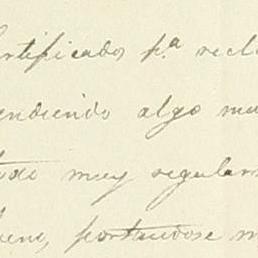 certificados p.ª recla
endiendo algo ma
todo muy regular
bien, portandose m